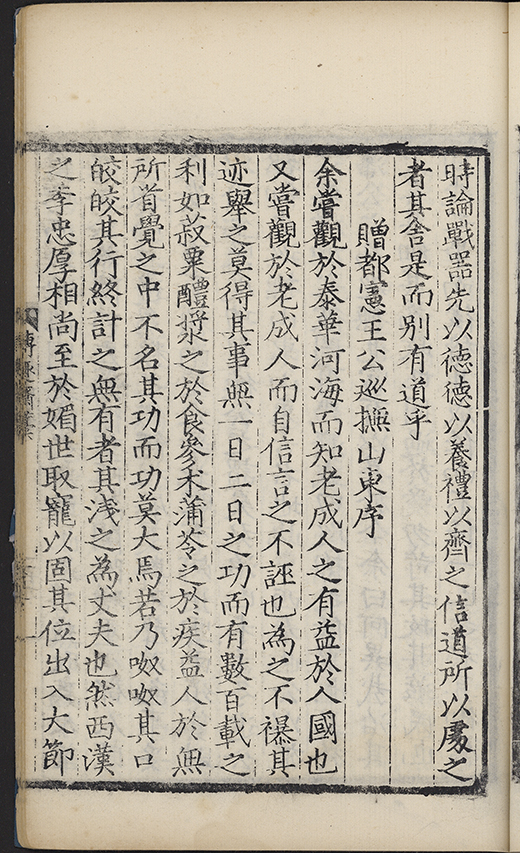 時論戰器先以德德以養禮以齊之信道所以處之
者其舍是而別有道乎
贈都憲王公巡撫山東序
余嘗觀於泰華河海而知老成人之有益於人國也
又嘗觀於老成人而自信言之不誣也為之不襮其
迹舉之莫得其事無一日二日之功而有數百載之
利如菽粟醴漿之於食參朮蒲苓之於疾益人於無
所首覺之中不名其功而功莫大焉若乃呶呶其口
皎皎其行終計之無有者其淺之為丈夫也然西漢
之季忠厚相尚至於媚世取寵以固其位出入大節